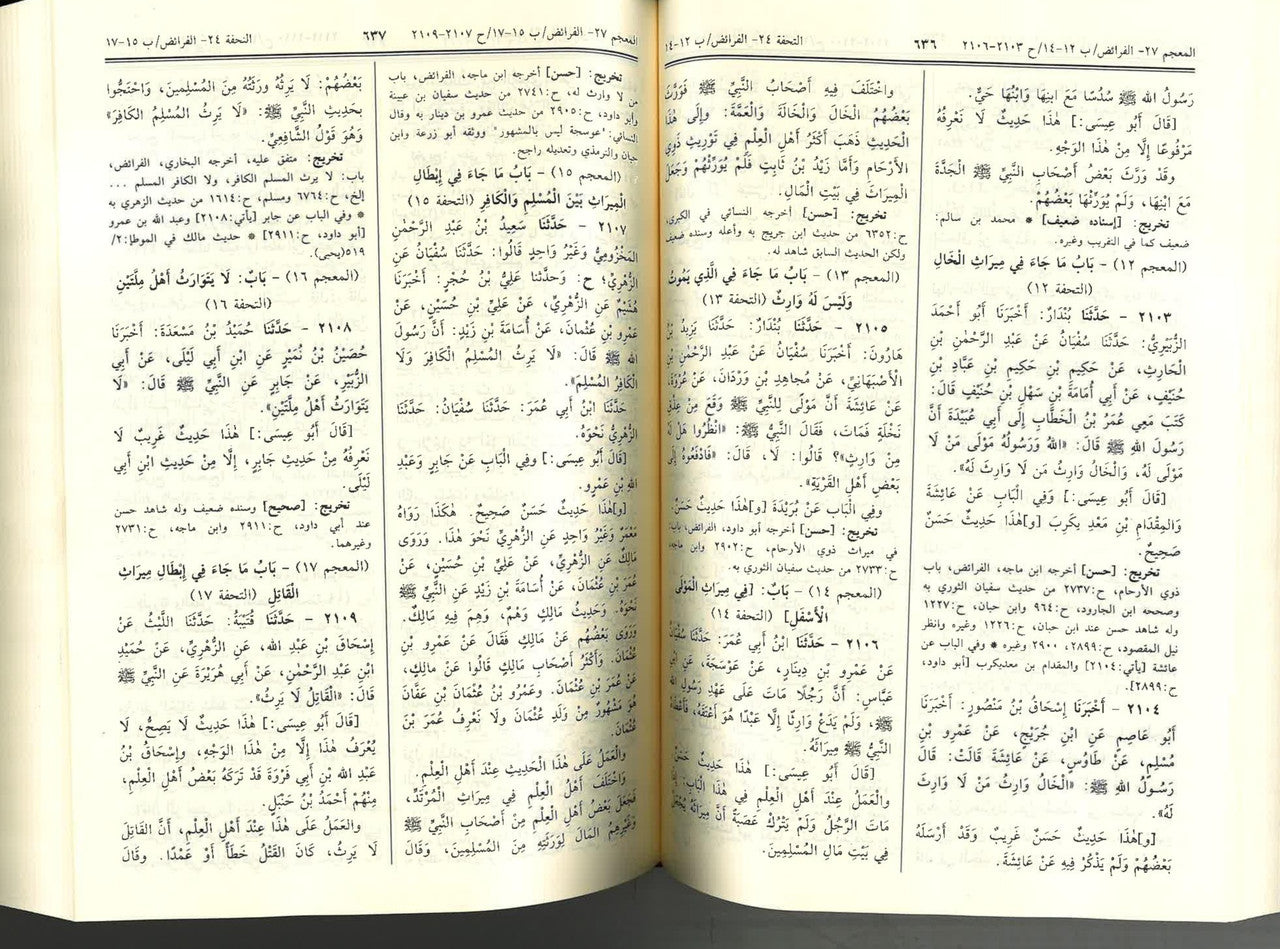 المعجم ٢٧- الفرائض/ ب ١٢-١٤/ ح ٢١٠٣-٢١٠٦
٦٣٦
التحفة ٢٤- الفرائض/ ب ١٢-١٤
رَسُولُ الله ﷺ سُدُسًا مَعَ ابنِهَا وَابْنُهَا حَيٌّ.
[قَالَ أَبُو عِيسَى:] هٰذَا حَدِيثٌ لَا نَعْرِفُهُ
مَرْفُوعًا إِلَّا مِنْ هٰذَا الْوَجْهِ.
وقَد وَرَّثَ بَعْضُ أَصْحَابِ النَّبِيِّ ﷺ الْجَدَّةَ
مَعَ ابْنِهَا، وَلَمْ يُوَرِّثْهَا بَعْضُهُمْ.
تخريج: [إسناده ضعيف] * محمد بن سالم:
ضعيف كما في التقريب وغيره.
(المعجم ١٢) - بَابُ مَا جَاءَ فِي مِيرَاثِ الْخَالِ
(التحفة ١٢)
٢١٠٣ - حَدَّثَنَا بُنْدَارٌ: أَخْبَرَنَا أَبُو أَحْمَدَ
الزُّبَيْرِيُّ: حَدَّثَنَا سُفْيَانُ عَنْ عَبْدِ الرَّحْمٰنِ بْنِ
الْحَارِثِ، عَنْ حَكِيمِ بْنِ حَكِيمِ بْنِ عَبَّادِ بْنِ
حُنَيْفٍ، عَنْ أَبِي أُمَامَةَ بْنِ سَهْلِ بْنِ حُنَيْفٍ قَالَ:
كَتَبَ مَعِي عُمَرُ بْنُ الْخَطَّابِ إِلَى أَبِي عُبَيْدَةَ أَنَّ
رَسُولَ الله ﷺ قَالَ: «اللهُ وَرَسُولُهُ مَوْلَى مَنْ لَا
مَوْلَى لَهُ، وَالْخَالُ وَارِثُ مَن لَا وَارِثَ لَهُ».
[قَالَ أَبُو عِيسَى:] وَفِي الْبَابِ عَنْ عَائِشَةَ
وَالمِقْدَامِ بْنِ مَعْدِ يكَرِبَ [و]هٰذَا حَدِيثٌ حَسَنٌ
صَحِيحٌ.
تخريج: [حسن] أخرجه ابن ماجه، الفرائض، باب
ذوي الأرحام، ح:٢٧٣٧ من حديث سفيان الثوري به
وصححه ابن الجارود، ح:٩٦٤ وابن حبان، ح:١٢٢٧
وله شاهد حسن عند ابن حبان، ح:١٢٢٦ وغيره وانظر
نيل المقصود، ح:٢٨٩٩، ٢٩٠٠ وغيره * وفي الباب عن
عائشة [يأتي:٢١٠٤] والمقدام بن معديكرب [أبو داود،
ح:٢٨٩٩].
٢١٠٤ - أَخْبَرَنَا إِسْحَاقُ بْنُ مَنْصُورٍ: أَخْبَرَنَا
أَبُو عَاصِمٍ عَنِ ابْنِ جُرَيْجٍ، عَنْ عَمْرِو بْنِ
مُسْلِمٍ، عَنْ طَاوُسٍ، عَنْ عَائِشَةَ قَالَتْ: قَالَ
رَسُولُ اللهِ ﷺ: «الْخَالُ وَارِثُ مَنْ لَا وَارِثَ
لَهُ».
[و]هٰذَا حَدِيثٌ حَسَنٌ غَرِيبٌ وَقَد أَرْسَلَهُ
بَعْضُهُمْ وَلَمْ يَذْكُرْ فِيهِ عَنْ عَائِشَةَ.
واخْتَلَفَ فِيهِ أَصْحَابُ النَّبِيِّ ﷺ فَوَرَّثَ
بَعْضُهُمُ الْخَالَ وَالْخَالَةَ وَالْعَمَّةَ: وَإِلَى هٰذَا
الْحَدِيثِ ذَهَبَ أَكْثَرُ أَهْلِ الْعِلْمِ فِي تَوْرِيثِ ذَوِي
الأَرْحَامِ وَأَمَّا زَيْدُ بْنُ ثَابِتٍ فَلَمْ يُوَرِّثْهُمْ وَجَعَلَ
الْمِيرَاثَ فِي بَيْتِ الْمَالِ.
تخريج: [حسن] أخرجه النسائي في الكبرى،
ح:٦٣٥٢ من حديث ابن جريج به وأعله وسنده ضعيف
ولكن الحديث السابق شاهد له.
(المعجم ١٣) - بَابُ مَا جَاءَ فِي الَّذِي يَمُوتُ
وَلَيْسَ لَهُ وَارِثٌ (التحفة ١٣)
٢١٠٥ - حَدَّثَنَا بُنْدَارٌ: حَدَّثَنَا يَزِيدُ بْنُ
هَارُونَ: أَخْبَرَنَا سُفْيَانُ عَنْ عَبْدِ الرَّحْمٰنِ بْنِ
الْأَصْبَهَانِيِّ، عَنْ مُجَاهِدِ بْنِ وَرْدَانَ، عَنْ عُرْوَةَ،
عَنْ عَائِشَةَ أَنَّ مَوْلًى لِلنَّبِيِّ ﷺ وَقَعَ مِنْ عِذْقِ
نَخْلَةٍ فَمَاتَ، فَقَالَ النَّبِيُّ ﷺ: «انْظُرُوا هَلْ لَهُ
مِنْ وَارِثٍ»؟ قَالُوا: لَا، قَالَ: «فَادْفَعُوهُ إِلَى
بَعْضِ أَهْلِ الْقَرْيَةِ».
وفِي الْبَابِ عَنْ بُرَيْدَةَ [و]هٰذَا حَدِيثٌ حَسَنٌ.
تخريج: [حسن] أخرجه أبو داود، الفرائض، باب:
في ميراث ذوي الأرحام، ح:٢٩٠٢ وابن ماجه،
ح:٢٧٣٣ من حديث سفيان الثوري به.
(المعجم ١٤) - بَابٌ: [فِي مِيرَاثِ الْمَوْلَى
الْأَسْفَلِ] (التحفة ١٤)
٢١٠٦ - حَدَّثَنَا ابْنُ أَبِي عُمَرَ: حَدَّثَنَا سُفْيَانُ
عَنْ عَمْرِو بْنِ دِينَارٍ، عَنْ عَوْسَجَةَ، عَنِ ابْنِ
عَبَّاسٍ: أَنَّ رَجُلًا مَاتَ عَلَى عَهْدِ رَسُولِ اللهِ
ﷺ، وَلَمْ يَدَعْ وَارِثًا إِلَّا عَبْدًا هُوَ أَعْتَقَهُ، فَأَعْطَاهُ
النَّبِيُّ ﷺ مِيرَاثَهُ.
[قَالَ أَبُو عِيسَى:] هٰذَا حَدِيثٌ حَسَنٌ
والْعَمَلُ عِنْدَ أَهْلِ الْعِلْمِ فِي هٰذَا الْبَابِ: إِذَا
مَاتَ الرَّجُلُ وَلَمْ يَتْرُكْ عَصَبَةً أَنَّ مِيرَاثَهُ يُجْعَلُ
فِي بَيْتِ مَالِ الْمُسْلِمِينَ.
المعجم ٢٧- الفرائض/ ب ١٥-١٧/ ح ٢١٠٧-٢١٠٩
٦٣٧
التحفة ٢٤- الفرائض/ ب ١٥-١٧
تخريج: [حسن] أخرجه ابن ماجه، الفرائض، باب
من لا وارث له، ح:٢٧٤١ من حديث سفيان بن عيينة
وأبو داود، ح:٢٩٠٥ من حديث عمرو بن دينار به وقال
النسائي: "عوسجة ليس بالمشهور" ووثقه أبو زرعة وابن
حبان والترمذي وتعديله راجح.
(المعجم ١٥) - بَابُ مَا جَاءَ فِي إِبْطَالِ
الْمِيرَاثِ بَيْنَ الْمُسْلِمِ وَالْكَافِرِ (التحفة ١٥)
٢١٠٧ - حَدَّثَنَا سَعِيدُ بْنُ عَبْدِ الرَّحْمٰنِ
المَخْزُومِيُّ وَغَيْرُ وَاحِدٍ قَالُوا: حَدَّثَنَا سُفْيَانُ عَنِ
الزُّهْرِيِّ؛ ح: وَحَدَّثَنا عَلِيُّ بْنُ حُجْرٍ: أَخْبَرَنَا
هُشَيْمٌ عَنِ الزُّهْرِيِّ، عَنْ عَلِيِّ بْنِ حُسَيْنٍ، عَنْ
عَمْرِو بْنِ عُثْمَانَ، عَنْ أُسَامَةَ بْنِ زَيْدٍ: أَنَّ رَسُولَ
الله ﷺ قَالَ: «لَا يَرِثُ الْمُسْلِمُ الْكَافِرَ وَلَا
الْكَافِرُ الْمُسْلِمَ».
حَدَّثَنَا ابْنُ أَبِي عُمَرَ: حَدَّثَنَا سُفْيَانُ: حَدَّثَنَا
الزُّهْرِيُّ نَحْوَهُ.
[قَالَ أَبُو عِيسَى:] وفِي الْبَابِ عَنْ جَابِرٍ وَعَبْدِ
اللهِ بْنِ عَمْرٍو.
[و]هٰذَا حَدِيثٌ حَسَنٌ صَحِيحٌ. هٰكَذَا رَوَاهُ
مَعْمَرٌ وَغَيْرُ وَاحِدٍ عَنِ الزُّهْرِيِّ نَحْوَ هٰذَا. وَرَوَى
مَالِكٌ عَنِ الزُّهْرِيِّ، عَنْ عَلِيِّ بْنِ حُسَيْنٍ، عَنْ
عُمَرَ بْنِ عُثْمَانَ، عَنْ أُسَامَةَ بْنِ زَيْدٍ عَنِ النَّبِيِّ ﷺ
نَحْوَهُ. وَحَدِيثُ مَالِكٍ وَهْمٌ، وَهِمَ فِيهِ مَالِكٌ.
وَرَوَى بَعْضُهُمْ عَنْ مَالِكٍ فَقَالَ عَنْ عَمْرِو بْنِ
عُثْمَانَ. وَأَكْثَرُ أَصْحَابِ مَالِكٍ قَالُوا عَنْ مَالِكٍ،
عَنْ عُمَرَ بْنِ عُثْمَانَ. وَعَمْرُو بْنُ عُثْمَانَ بْنِ عَفَّانَ
هُوَ مَشْهُورٌ مِنْ وَلَدِ عُثْمَانَ ولَا نَعْرِفُ عُمَرَ بْنَ
عُثْمَانَ.
والْعَمَلُ عَلَى هٰذَا الْحَدِيثِ عِنْدَ أَهْلِ الْعِلْمِ.
وَاخْتَلَفَ أَهْلُ الْعِلْمِ فِي مِيرَاثِ الْمُرْتَدِّ،
فَجَعَلَ بَعْضُ أَهْلِ الْعِلْمِ مِنْ أَصْحَابِ النَّبِيِّ ﷺ
وَغَيْرِهِمُ المَالَ لِوَرَثَتِهِ مِنَ الْمُسْلِمِينَ، وَقَالَ
بَعْضُهُمْ: لَا يَرِثُهُ وَرَثَتُهُ مِنَ الْمُسْلِمِينَ، وَاحْتَجُّوا
بحَدِيثِ النَّبِيِّ ﷺ: «لَا يَرِثُ المُسْلِمُ الْكَافِرَ»
وَهُوَ قَوْلُ الشَّافِعِيِّ.
تخريج: متفق عليه، أخرجه البخاري، الفرائض،
باب: لا يرث المسلم الكافر، ولا الكافر المسلم ...
إلخ، ح:٦٧٦٤ ومسلم، ح:١٦١٤ من حديث الزهري به
* وفي الباب عن جابر [يأتي:٢١٠٨] وعبد الله بن عمرو
[أبو داود، ح:٢٩١١] * حديث مالك في الموطإ:٢/
٥١٩(يحيى).
(المعجم ١٦) - بَابٌ: لَا يَتَوَارَثُ أَهْلُ مِلَّتَيْنِ
(التحفة ١٦)
٢١٠٨ - حَدَّثَنَا حُمَيْدُ بْنُ مَسْعَدَةَ: أَخْبَرَنَا
حُصَيْنُ بْنُ نُمَيْرٍ عَنِ ابْنِ أَبِي لَيْلَى، عَنْ أَبِي
الزُّبَيْرِ، عَنْ جَابِرٍ عَنِ النَّبِيِّ ﷺ قَالَ: «لَا
يَتَوَارَثُ أَهْلُ مِلَّتَيْنِ».
[قَالَ أَبُو عِيسَى:] هٰذَا حَدِيثٌ غَرِيبٌ لَا
نَعْرِفُهُ مِنْ حَدِيثِ جَابِرٍ، إِلَّا مِنْ حَدِيثِ ابْنِ أَبِي
لَيْلَى.
تخريج: [صحيح] وسنده ضعيف وله شاهد حسن
عند أبي داود، ح:٢٩١١ وابن ماجه، ح:٢٧٣١
وغيرهما.
(المعجم ١٧) - بَابُ مَا جَاءَ فِي إِبْطَالِ مِيرَاثِ
الْقَاتِلِ (التحفة ١٧)
٢١٠٩ - حَدَّثَنَا قُتَيْبَةُ: حَدَّثَنَا اللَّيْثُ عَنْ
إِسْحَاقَ بْنِ عَبْدِ الله، عَنِ الزُّهْرِيِّ، عَنْ حُمَيْدِ
ابْنِ عَبْدِ الرَّحْمٰنِ، عَنْ أَبِي هُرَيْرَةَ عَنِ النَّبِيِّ ﷺ
قَالَ: «الْقَاتِلُ لَا يَرِثُ».
[قَالَ أَبُو عِيسَى:] هٰذَا حَدِيثٌ لَا يَصِحُّ، لَا
يُعْرَفُ هٰذَا إِلَّا مِنْ هٰذَا الْوَجْهِ، وَإِسْحَاقُ بْنُ
عَبْدِ الله بْنِ أَبِي فَرْوَةَ قَدْ تَرَكَهُ بَعْضُ أَهْلِ الْعِلْمِ،
مِنْهُمْ أَحْمَدُ بْنُ حَنْبَلٍ.
والْعَمَلُ عَلَى هٰذَا عِنْدَ أَهْلِ الْعِلْمِ، أَنَّ القَاتِلَ
لَا يَرِثُ، كَانَ القَتْلُ خَطَأً أَوْ عَمْدًا. وَقَالَ